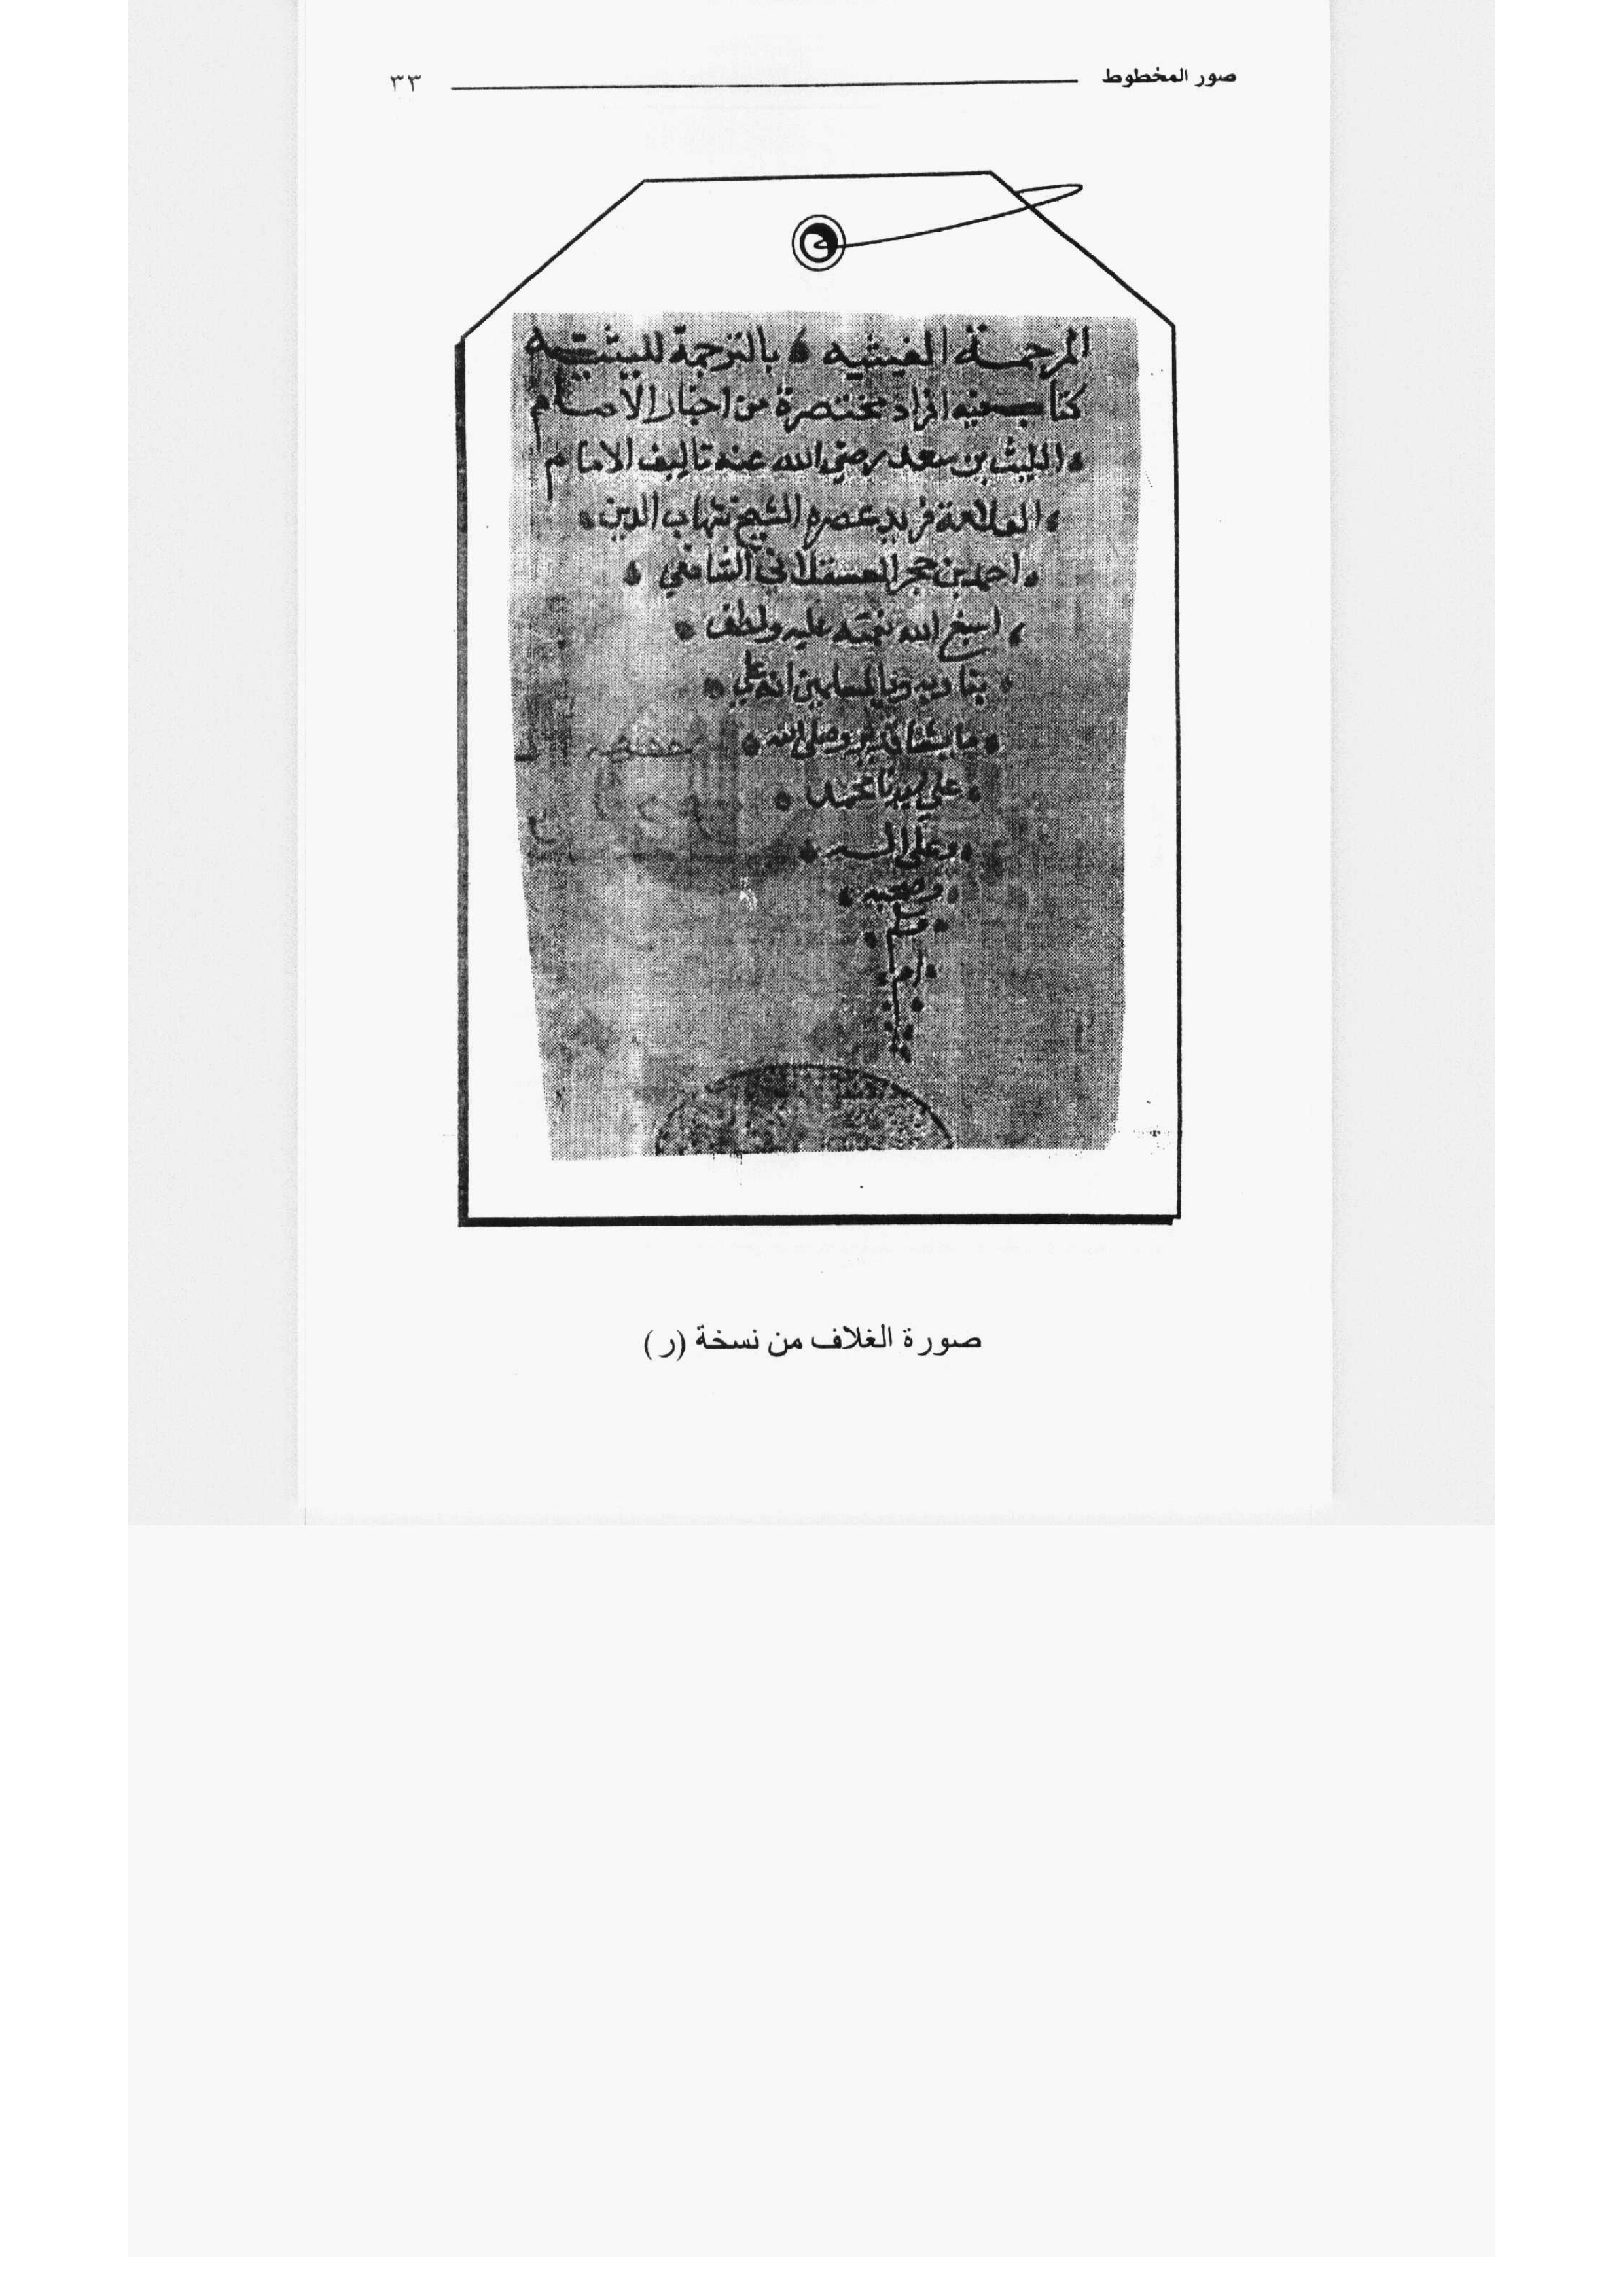 صور المخطوط ٣٣
المرحمة الغيثيه بالترجمة لليثيه
كتاب فيه مختصرة من اخبار الامام
الليث بن سعد رضي الله عنه تاليف الامام
العلامة فريد عصره الشيخ شهاب الدين
احمد بن حجر العسقلاني الشافعي
اسبغ الله نعمته عليه ولطف
بنا وبه وبالمسلمين انه علي
ما يشا قدير وصلى الله
علي سيدنا محمد
وعلى اله
وصحبه
وسلم
صورة الغلاف من نسخة (ر)